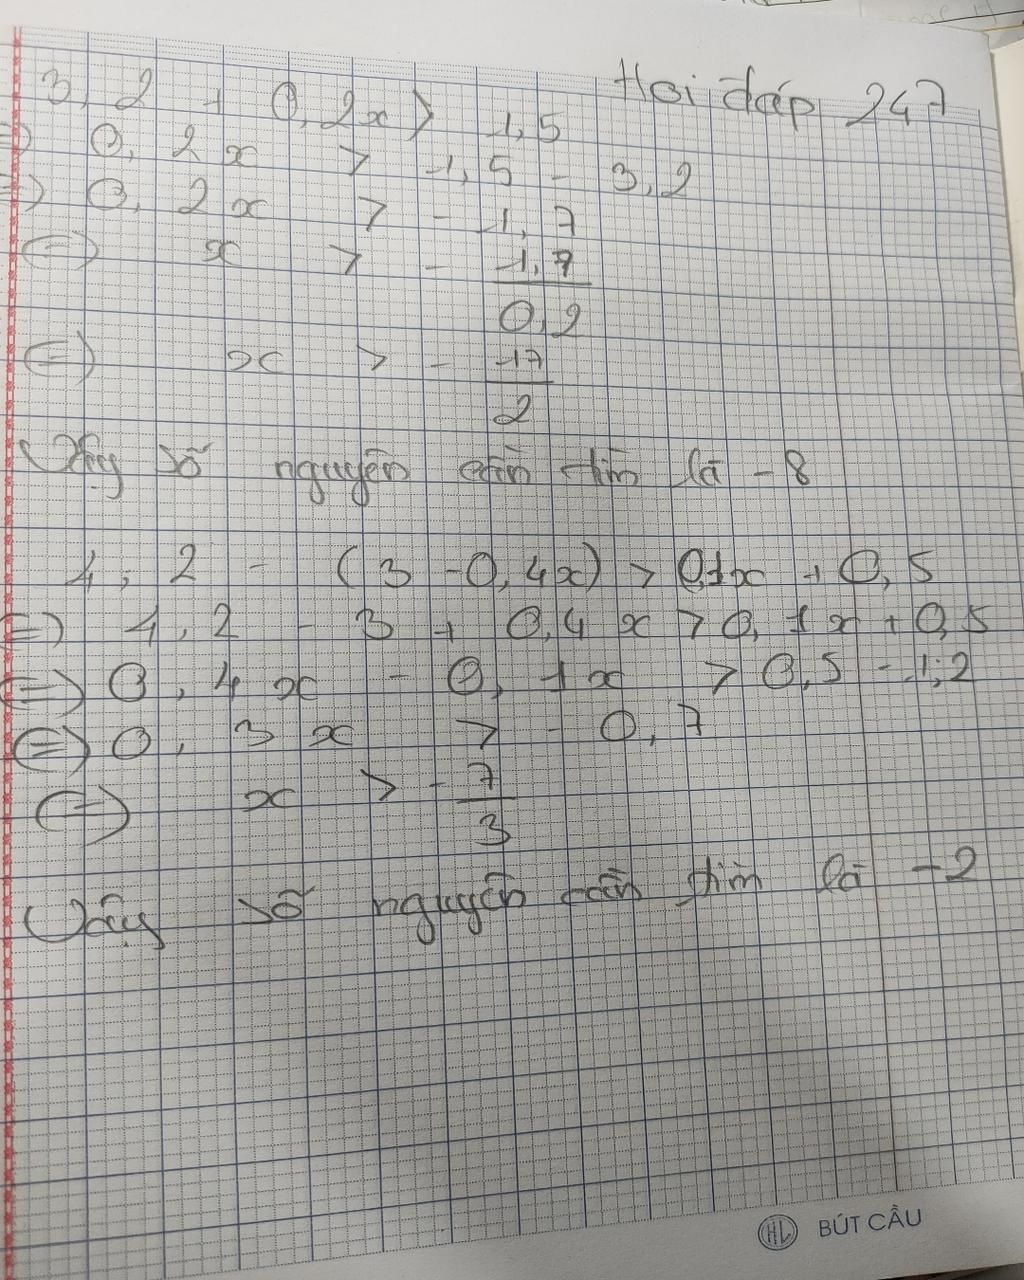 Hoi đáp 247
3,2 + 0,2x > 1,5
=) 0,2x > 1,5 - 3,2
=) 0,2x > - 1,7
(=) x > - 1,7/0,2
(=) x > - 17/2
Vậy số nguyên cần tìm là -8
4,2 - (3 -0,4x) > 0,1x + 0,5
=) 4,2 - 3 + 0,4x > 0,1x + 0,5
(=) 0,4x - 0,1x > 0,5 - 1,2
(=) 0,3x > - 0,7
(=) x > - 7/3
Vậy số nguyên cần tìm là -2
HL BÚT CẦU